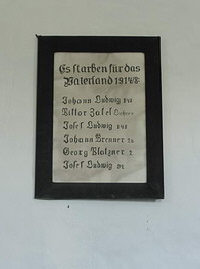 Es starben für das
Vaterland 1914/18:
Johann Ludwig
Viktor Zatel Lehrer
Josef Ludwig
Johann Brenner
Georg Blatzner 2
Josef Ludwig